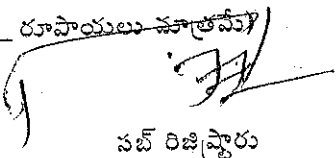 రూపాయలు మాత్రమే
సబ్ రిజిష్ట్రారు